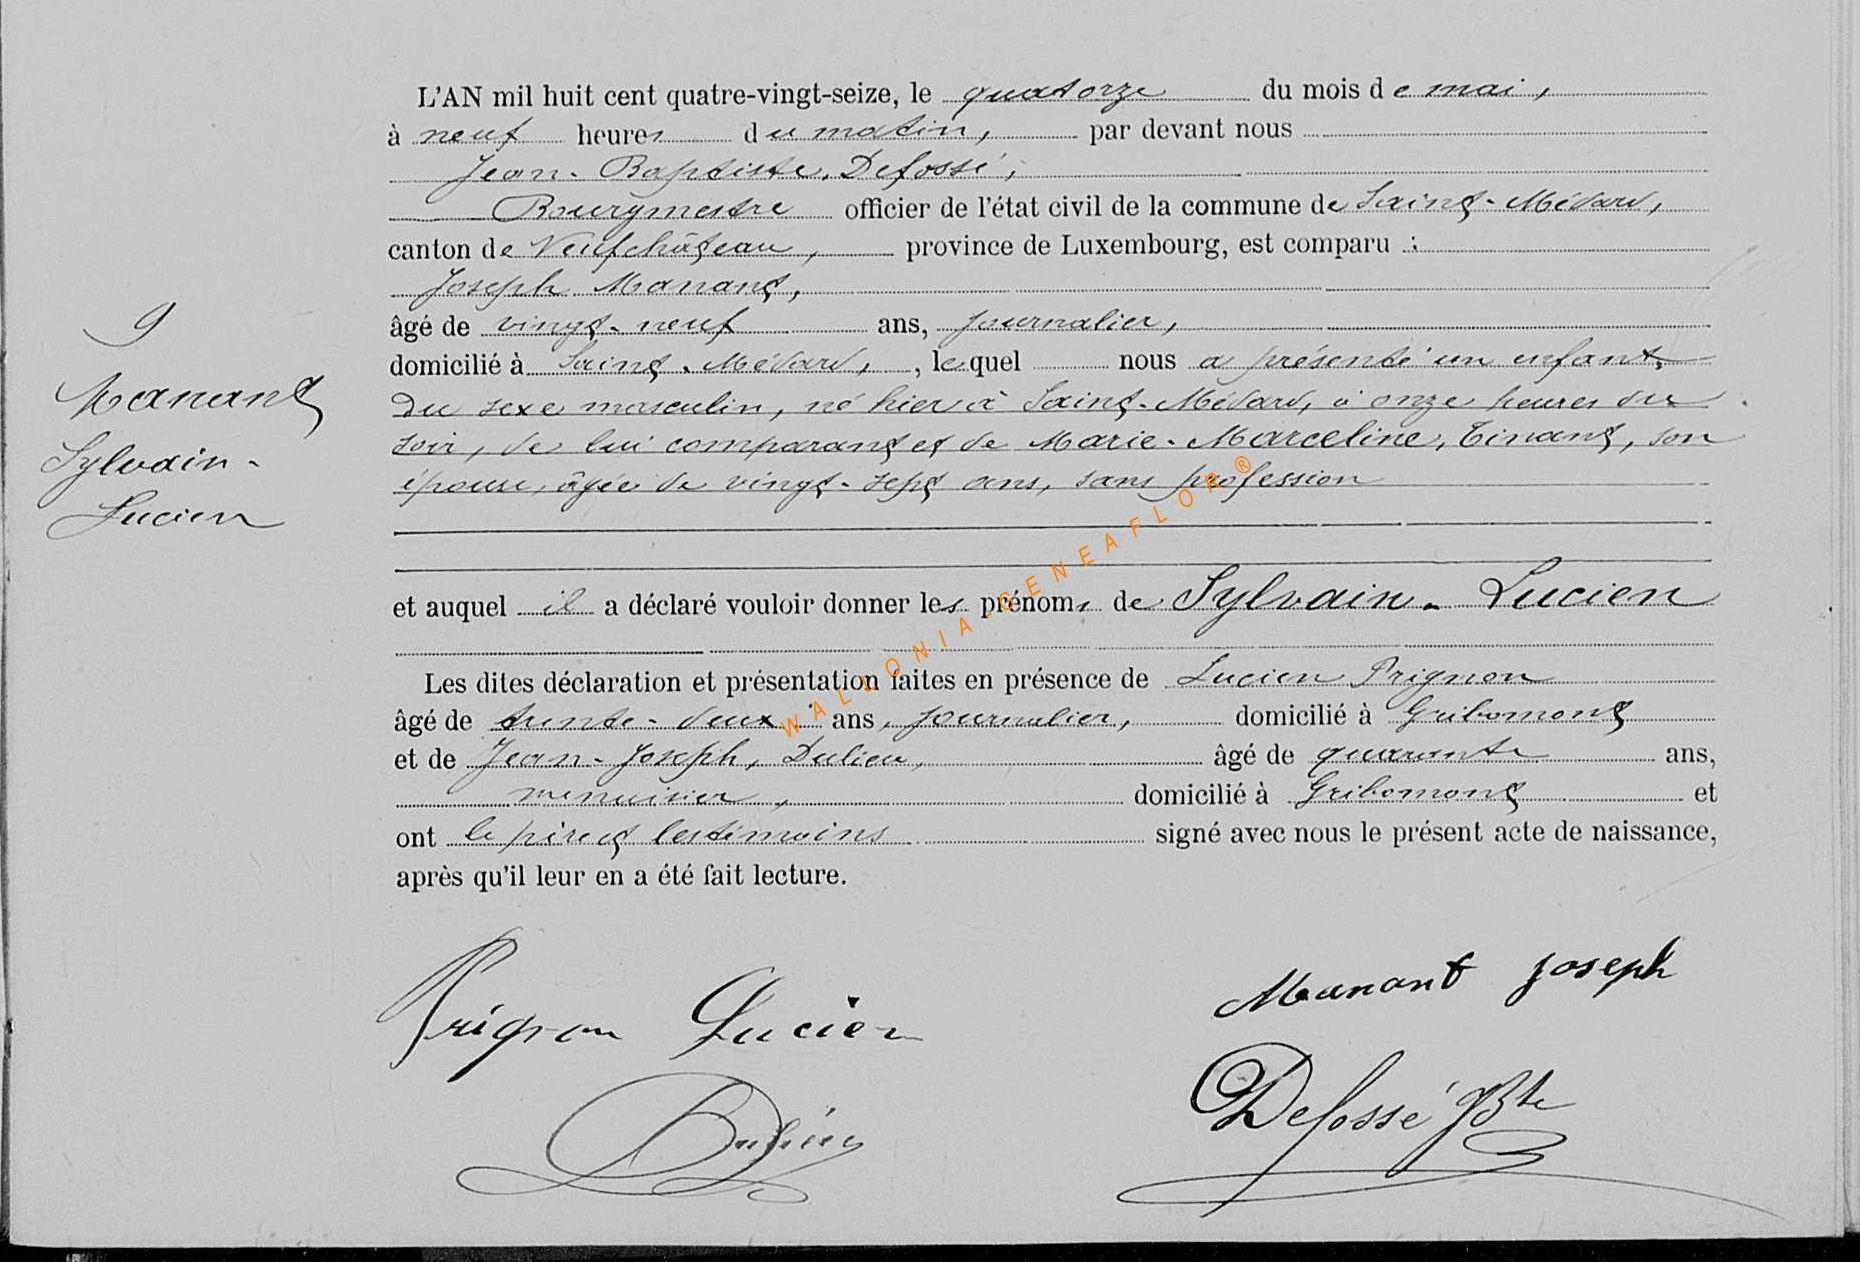 L'AN mil huit cent quatre-vingt-seize, le quatorze du mois de mai,
à neuf heures du matin, par devant nous
Jean-Baptiste, Defossé,
Bourgmestre officier de l'état civil de la commune de Saint-Médard,
canton de Neufchâteau, province de Luxembourg, est comparu :
Joseph Manant,
âgé de vingt-neuf ans, journalier,
domicilié à Saint-Médard, , lequel nous a présenté un enfant
du sexe masculin, né hier à Saint-Médard, à onze heures du
soir, de lui comparant et de Marie-Marceline, Tinant, son
épouse, âgée de vingt-sept ans, sans profession
et auquel il a déclaré vouloir donner les prénoms de Sylvain-Lucien
Les dites déclaration et présentation faites en présence de Lucien Prignon
âgé de trente-deux ans, journalier, domicilié à Gribomont
et de Jean-Joseph, Dulieu, âgé de quarante ans,
menuisier, domicilié à Gribomont et
ont le père et les témoins signé avec nous le présent acte de naissance,
après qu'il leur en a été fait lecture.
9
Manant
Sylvain-
Lucien
Prignon Lucien
Manant Joseph
Dulieu
Defossé JBte
WALLONIA-GENEAFLOR ®